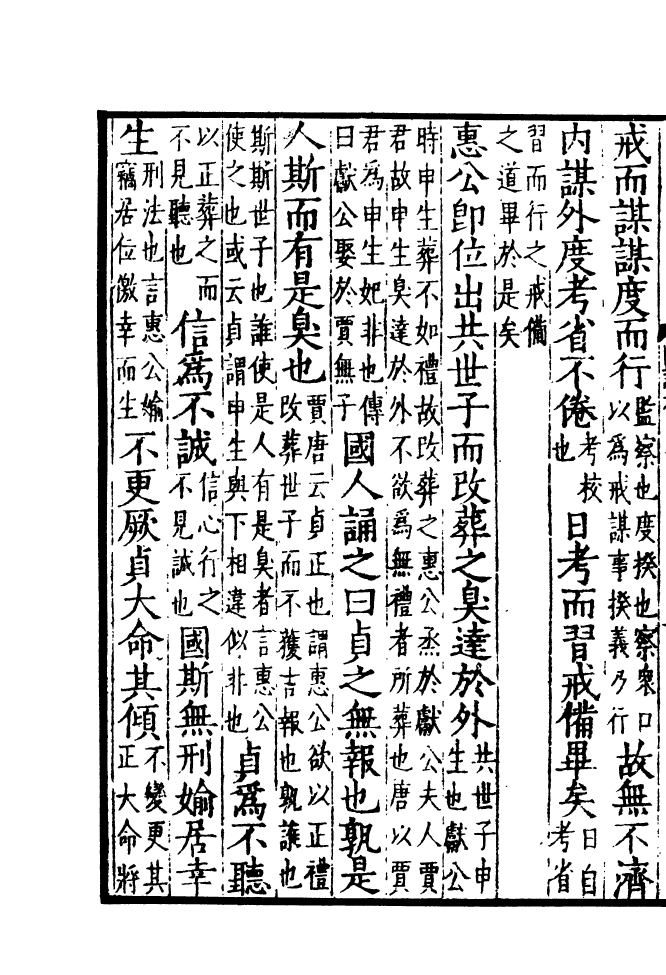 戒而謀謀度而行監察也度揆也察衆口以爲戒謀事揆義乃行故無不濟
內謀外度考省不倦考校也日考而習戒備畢矣日自考省
習而行之戒備之道畢於是矣
惠公卽位出共世子而改葬之臭達於外共世子申生也獻公
時申生葬不如禮故改葬之惠公烝於獻公夫人賈君故申生臭達於外不欲爲無禮者所葬也唐以賈
君爲申生妃非也傳曰獻公娶於賈無子國人誦之曰貞之無報也孰是
人斯而有是臭也賈唐云貞正也謂惠公欲以正禮改葬世子而不獲吉報也孰誰也
斯斯世子也誰使是人有是臭者言惠公使之也或云貞謂申生與下相違似非也貞爲不聽
以正葬之而不見聽也信爲不誠信心行之不見誠也國斯無刑媮居幸
生刑法也言惠公媮竊居位徼幸而生不更厥貞大命其傾不變更其正大命將